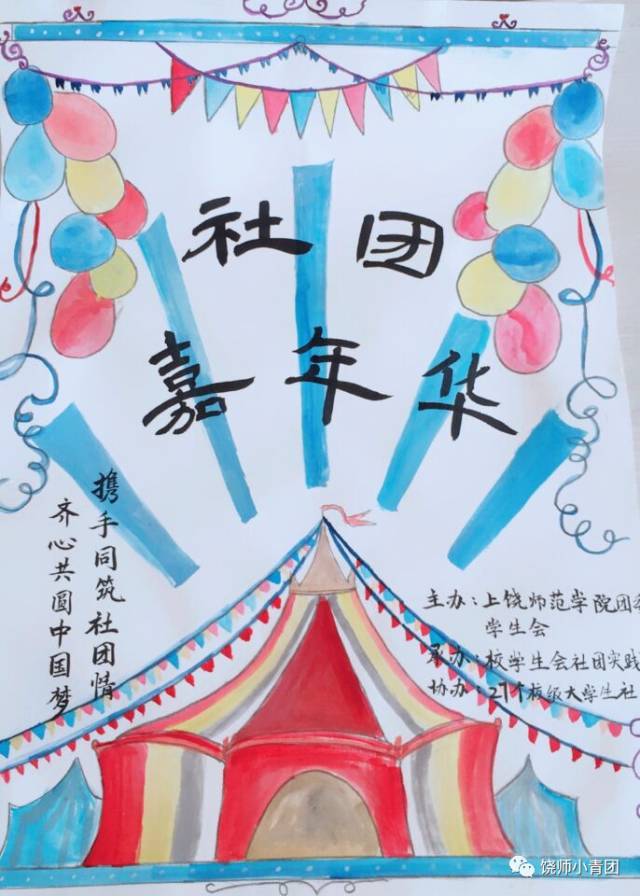 社团
嘉年华
携手同筑社团情
齐心共圆中国梦
主办：上饶师范学院团
学生会
承办：校学生会社团实践
协办：21个校级大学生社
饶师小青团